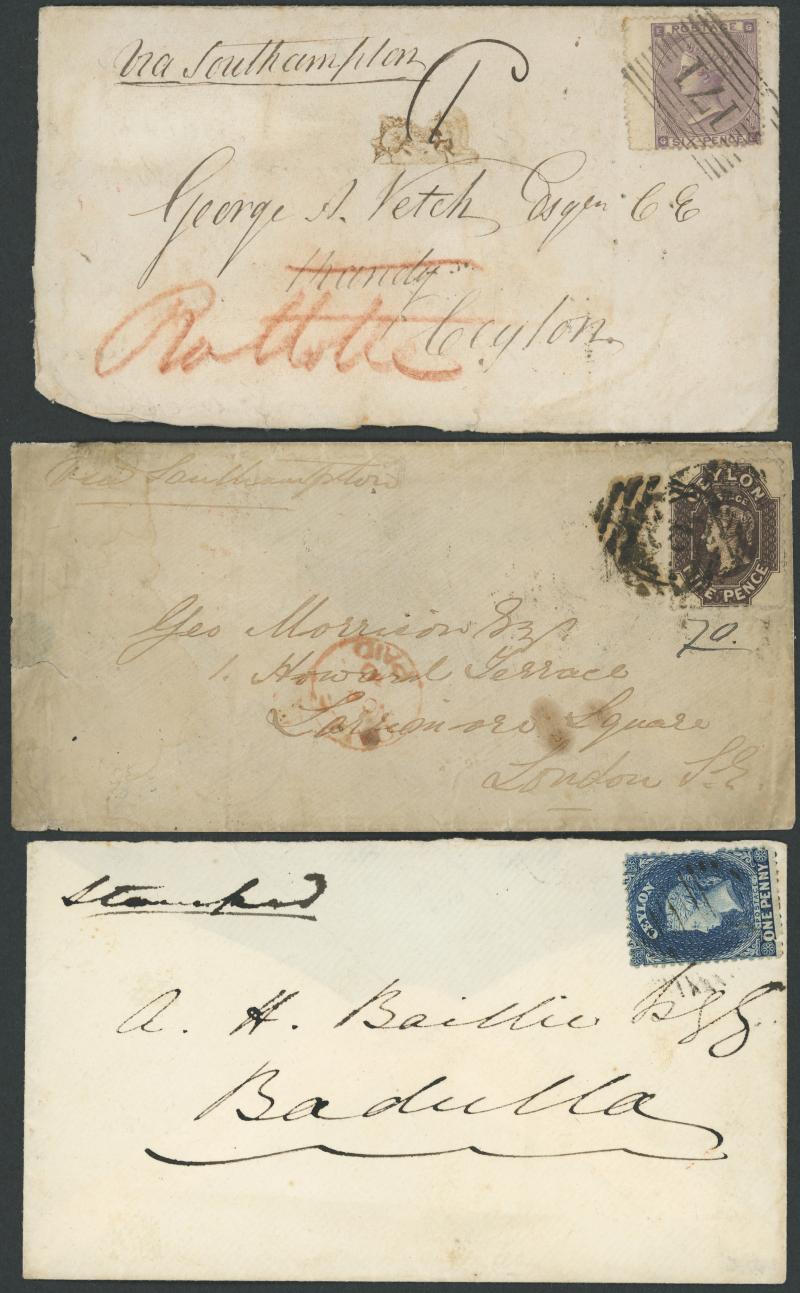 via Southampton
E POSTAGE G
171
G SIX PENCE E
George A. Vetch Esqre C E
Kandy
Rattota
Ceylon.
via Southampton
CEYLON
POSTAGE
PENCE
70.
Geo Morrison Esq
PAID
1. Howard Terrace
Lorrimore Square
London S.E
Stamped
CEYLON
POSTAGE
ONE PENNY
A. H. Baillie Esq
Badulla